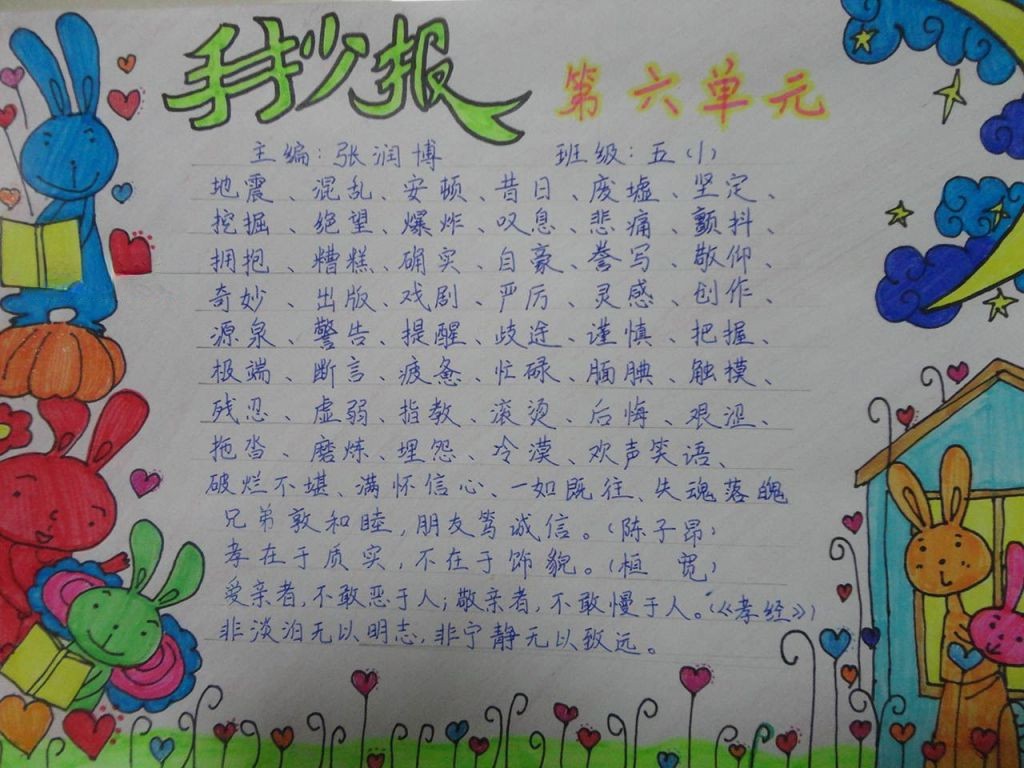 手抄报
第六单元
主编：张润博 班级：五（1）
地震、混乱、安顿、昔日、废墟、坚定、
挖掘、绝望、爆炸、叹息、悲痛、颤抖、
拥抱、糟糕、确实、自豪、誊写、敬仰、
奇妙、出版、戏剧、严厉、灵感、创作、
源泉、警告、提醒、歧途、谨慎、把握、
极端、断言、疲惫、忙碌、腼腆、触摸、
残忍、虚弱、指教、滚烫、后悔、艰涩、
拖沓、磨炼、埋怨、冷漠、欢声笑语、
破烂不堪、满怀信心、一如既往、失魂落魄
兄弟敦和睦，朋友笃诚信。（陈子昂）
孝在于质实，不在于饰貌。（桓宽）
爱亲者，不敢恶于人；敬亲者，不敢慢于人。（《孝经》）
非淡泊无以明志，非宁静无以致远。